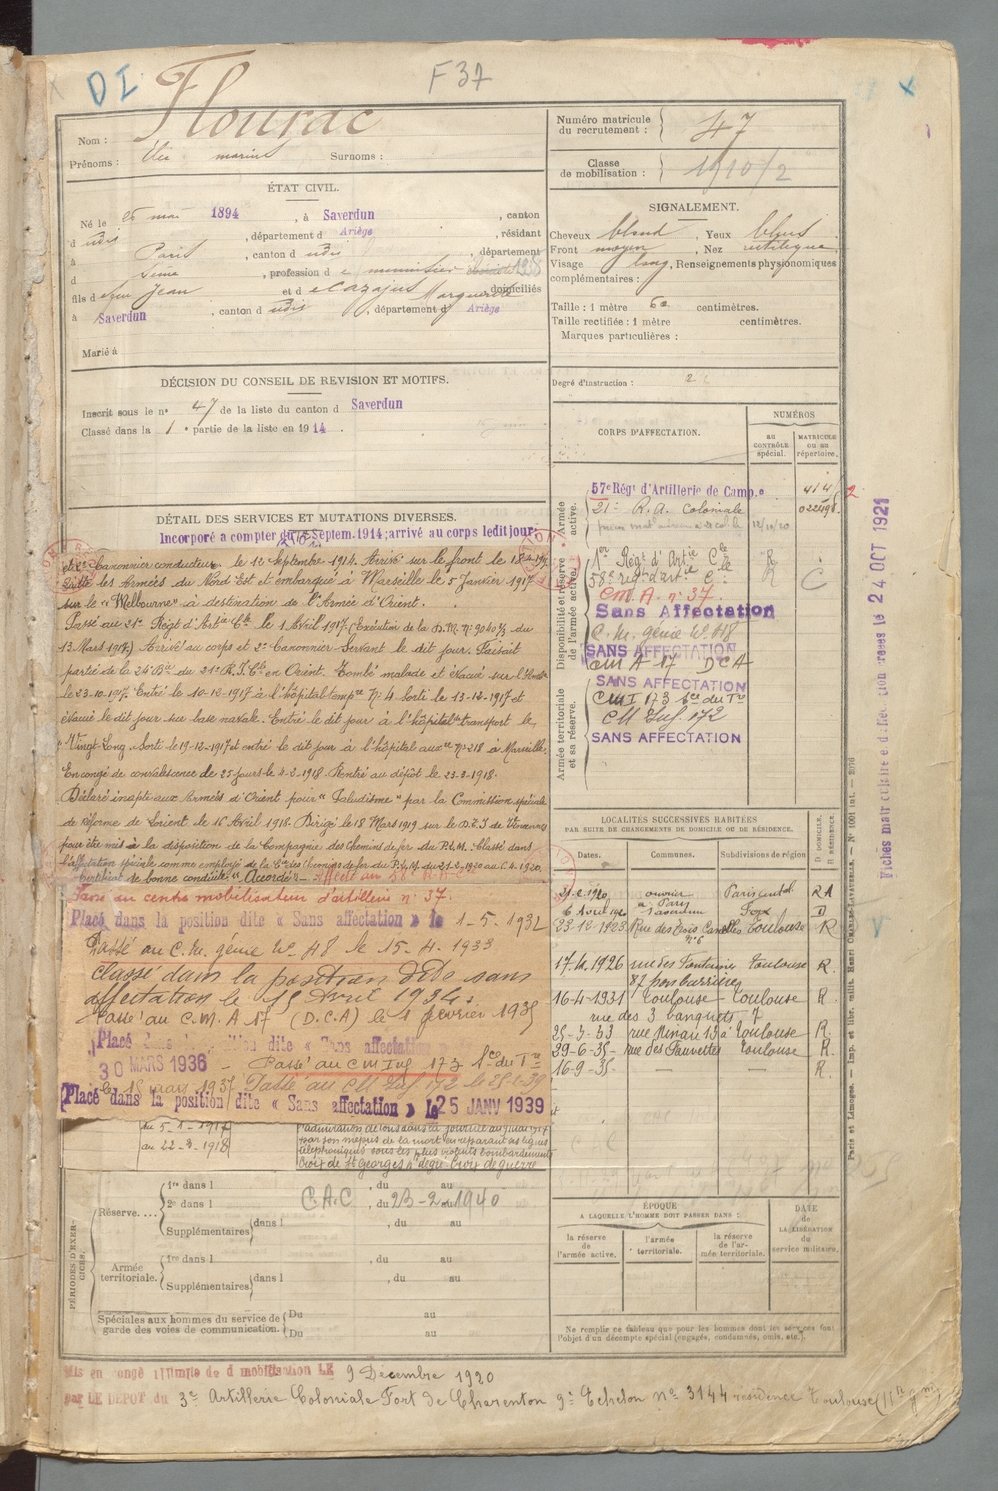 DI
F 37
Nom : Flourac
Prénoms : marius Surnoms :
Numéro matricule du recrutement : 47
Classe de mobilisation : 1910/2
ÉTAT CIVIL.
Né le 25 mai 1894, à Saverdun, canton
d udis, département d Ariège, résidant
à Paris, canton d udis, département
d Seine, profession d e
fils d e feu Jean et d e Cazajus Marguerite, domiciliés
à Saverdun, canton d udis, département d Ariège
Marié à
SIGNALEMENT.
Cheveux blond, Yeux bleus
Front moyen, Nez rectiligne
Visage long, Renseignements physionomiques
complémentaires :
Taille : 1 mètre 60 centimètres.
Taille rectifiée : 1 mètre centimètres.
Marques particulières :
Degré d'instruction : 2
DÉCISION DU CONSEIL DE REVISION ET MOTIFS.
Inscrit sous le n° 47 de la liste du canton d Saverdun
Classé dans la 1e partie de la liste en 1914.
DÉTAIL DES SERVICES ET MUTATIONS DIVERSES.
Incorporé a compter du 12 Septem. 1914; arrivé au corps ledit jour
et 2e Canonnier conducteur le 12 Septembre 1914. Arrivé sur le front le
Quitte les Armées du Nord Est et embarqué à Marseille le 5 Janvier 1917
sur le "Melbourne" à destination de l'Armée d'Orient.
Passé au 21e Régt d'Artie Cle le 1 Avril 1917. (Exécution de la D.M. N° 9040 3/3 du
13 Mars 1917.) Arrivé au corps et 2e Canonnier Servant le dit jour. Faisait
partie de la 24e Bie du 21e R.A.Cle en Orient. Tombé malade et évacué sur l'
le 23.10.1917. Entré le 10-12-1917 à l'hôpital tempre N° 4 Sorti le 13-12-1917 et
évacué le dit jour sur base navale. Entré le dit jour à l'hôpital transport le
"Vingt-Long". Sorti le 19-12-1917 et entré le dit jour à l'hôpital auxre N° 218 à Marseille,
En congé de convalescence de 25 jours le 4-2-1918. Rentré au dépôt le 23-3-1918.
Déclaré inapte aux Armées d'Orient pour "Paludisme" par la Commission spéciale
de Réforme de Lorient le 16 Avril 1918. Dirigé le 18 Mars 1919 sur le D.T.I de Vincennes
pour être mis à la disposition de la Compagnie des Chemins de fer du P.L.M. Classé dans
l'affectation spéciale comme employé de la Cie des Chemins de fer du P.L.M. du 21-2-1920 au 6.4.1920.
Certificat de bonne conduite "Accordé" Affecté au 58e R.A.C
Passé au centre mobilisateur d'artillerie n° 37.
Placé dans la position dite « Sans affectation » le 1-5-1932
Passé au C.M. génie N° 48 le 15-4-1933
Classé dans la position dite sans
affectation le 15 Avril 1934.
Passé au C.M.A 17 (D.C.A) le 1 février 1935
Placé dans la position dite « Sans affectation »
30 MARS 1936 - Passé au CM Inf 173 Sce du Tre
le 18 mars 1937 Passé au CM Inf 172 le
Placé dans la position dite « Sans affectation » le 25 JANV 1939
du 5-1-1917
au 22-3-1918
l'admiration de tous dans la journée du
par son mépris de la mort en réparant les lignes
téléphoniques sous les plus violents bombardements
Croix de St Georges 4e degré. Croix de guerre
CORPS D'AFFECTATION.
NUMÉROS
au CONTRÔLE spécial.
MATRICULE ou au répertoire.
Armée active.
57e Régt d'Artillerie de Camp.e
21e R.A. Coloniale 022498
12/10/20
Disponibilité et réserve de l'armée active.
1er Régt d'Artie Cle
58e régt d'artie C.
C.M.A. n° 37.
Sans Affectation
C.M. génie N° 48
SANS AFFECTATION
CM A 17 DCA
Armée territoriale et sa réserve.
SANS AFFECTATION
CM I 173 Sce du Tre
CM Inf. 172
SANS AFFECTATION
LOCALITÉS SUCCESSIVES HABITÉES
PAR SUITE DE CHANGEMENTS DE DOMICILE OU DE RÉSIDENCE.
Dates. Communes. Subdivisions de région
D DOMICILE. R RÉSIDENCE.
21-2-1920 ouvrier à Paris Paris central RA
6 Avril 1920 Saverdun Foix D
23-12-1923 Rue des Trois Canelles n° 6 Toulouse R
17.4.1926 rue des Fontaines Toulouse R.
16-4-1931 Toulouse Toulouse R.
rue des 3 banquets 7
25-3-33 rue Ninau 13 à Toulouse R.
29-6-35- rue des Fauvettes Toulouse R.
16-9-35- — — R.
PÉRIODES D'EXERCICES.
Réserve....
1re dans l , du au
2e dans l C.A.C , du 23-2 au 1940
Supplémentaires dans l , du au
Armée territoriale.
1re dans l , du au
Supplémentaires dans l , du au
Spéciales aux hommes du service de garde des voies de communication.
Du au
Du au
ÉPOQUE
A LAQUELLE L'HOMME DOIT PASSER DANS :
la réserve de l'armée active.
l'armée territoriale.
la réserve de l'armée territoriale.
DATE de LA LIBÉRATION du service militaire.
Ne remplir ce tableau que pour les hommes dont les services font
l'objet d'un décompte spécial (engagés, condamnés, omis, etc.).
Mis en congé illimité de démobilisation LE 9 Décembre 1920
par LE DEPOT du 3e Artillerie Coloniale Fort de Charenton 9e Echelon n° 3144 résidence Toulouse
Paris et Limoges. — Imp. et libr. milit. Henri CHARLES-LAVAUZELLE. — N° 1001 int.
24 OCT 1921